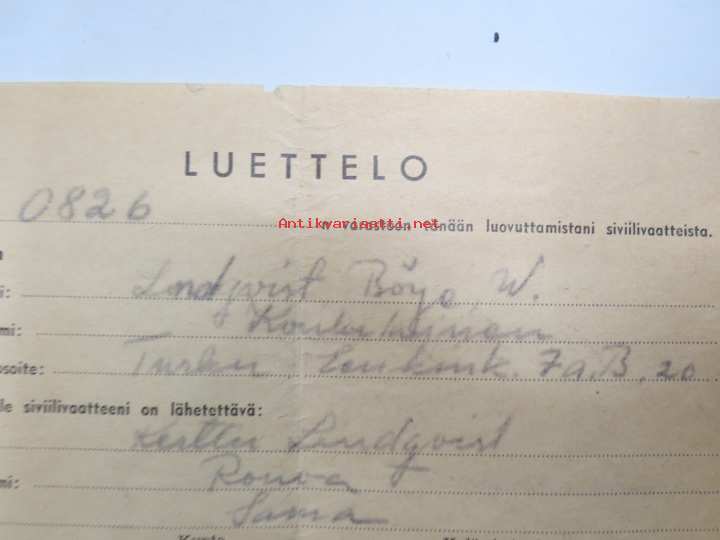 LUETTELO
0826 n varastoon tänään luovuttamistani siviilivaatteista.
Antikvariaatti.net
i: Lindqvist Börje W.
mi:
osoite: Turku 7a.B.20
lle siviilivaatteeni on lähetettävä:
Kerttu Lindqvist
mi: Rouva
Sama